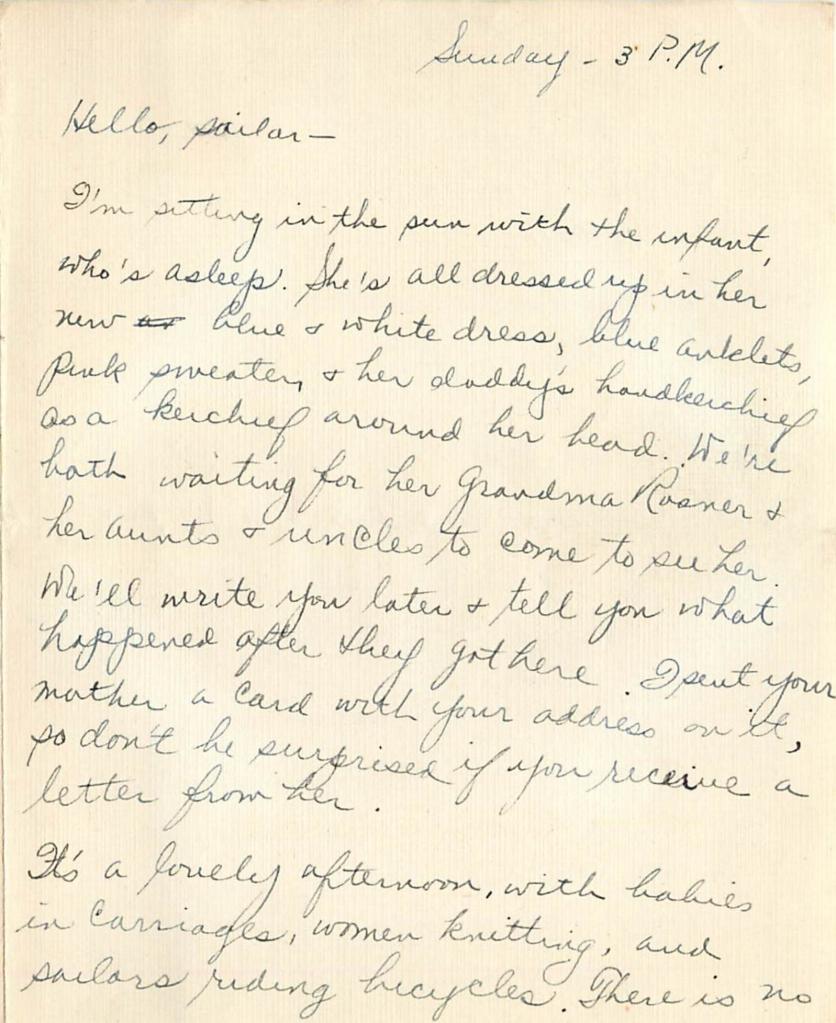 Sunday - 3 P.M.
Hello, sailor —
I'm sitting in the sun with the infant,
who's asleep. She's all dressed up in her
new blue & white dress, blue anklets,
pink sweater, & her daddy's handkerchief
as a kerchief around her head. We're
both waiting for her Grandma Rosner &
her aunts & uncles to come to see her.
We'll write you later & tell you what
happened after they got here. I sent your
mother a card with your address on it,
so don't be surprised if you receive a
letter from her.
It's a lovely afternoon, with babies
in carriages, women knitting, and
sailors riding bicycles. There is no